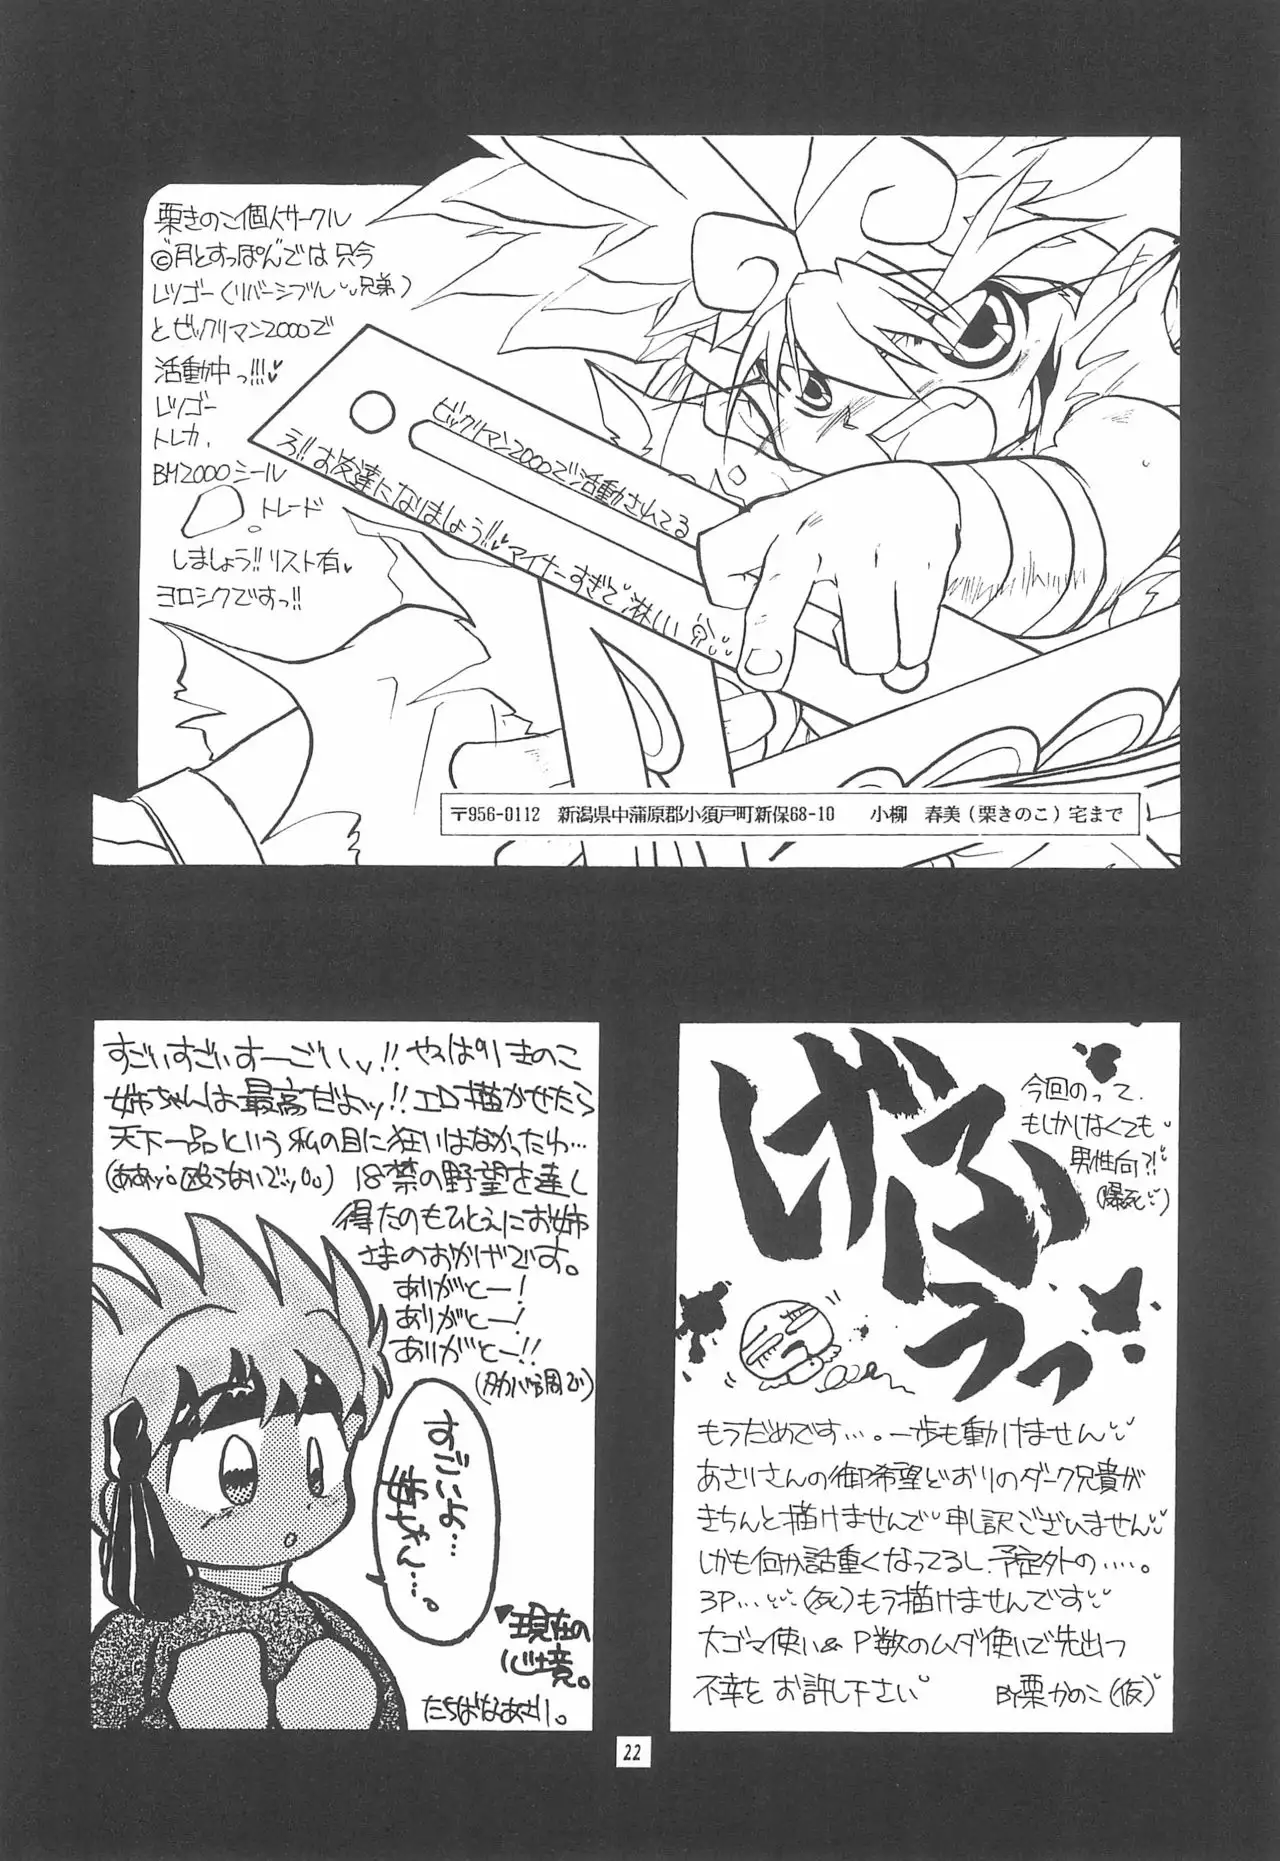 栗きのこ個人サークル
©"月とすっぽん"では只今
レツゴー(リバーシブル 兄弟)
とビックリマン2000で
活動中っ!!!♥
レツゴー
トレカ、
BM2000シール
トレード
しましょう!!リスト有♥
ヨロシクですっ!!
ビックリマン2000で活動されてる
え!!お友達になりましょう!!♥マイナーすぎて淋しい
〒956-0112 新潟県中蒲原郡小須戸町新保68-10 小柳 春美(栗きのこ)宅まで
すごいすごいすーごいっ!!やっぱりきのこ
姉ちゃんは最高だよッ!!エロ描かせたら
天下一品という私の目に狂いはなかったわ…
(ああッ。殴らないでッ。) 18禁の野望を達し
得たのもひとえにお姉
さまのおかげです。
ありがとー!
ありがとー!
ありがとー!!
すごいよ…
姉ちゃん…。
現在の
心境。
たちばなあさり。
げふうっ
今回のって、
もしかしなくても
男性向?!
(爆死)
もうだめです…。一歩も動けません
あさりさんの御希望どおりのダーク兄貴が
きちんと描けませんで申し訳ございません
しかも何か話重くなってるし、予定外の……。
3P…(死)もう描けませんです
大ゴマ使い& P数のムダ使いで先出つ
不幸を お許し下さい By栗かのこ(仮)
22